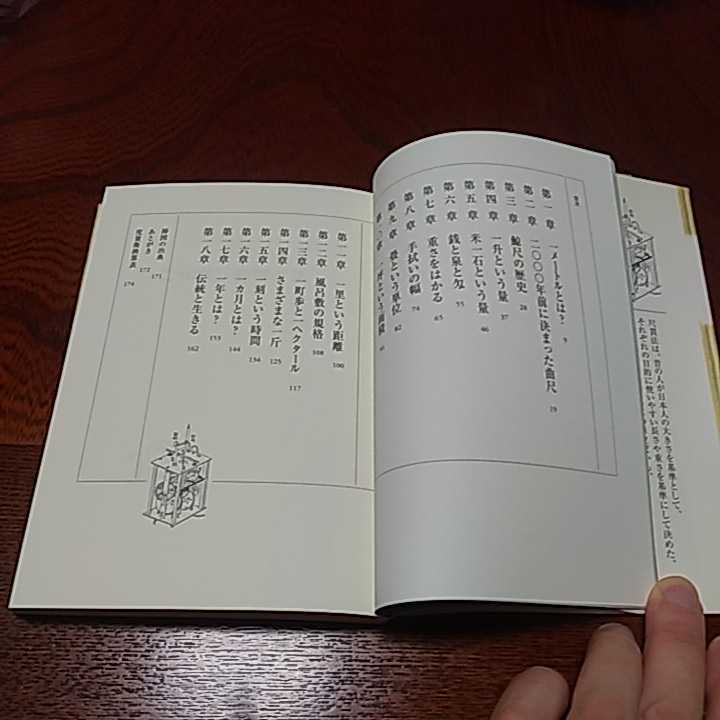 目次
第一章 一メートルとは? 9
第二章 二〇〇〇年前に決まった曲尺 19
第三章 鯨尺の歴史 28
第四章 一升という量 37
第五章 米一石という量 46
第六章 銭と泉と匁 55
第七章 重さをはかる 65
第八章 手拭いの幅 74
第九章 毂という単位 82
第一〇章 一坪という面積 91
第一一章 一里という距離 100
第一二章 風呂敷の規格 108
第一三章 一町歩と一ヘクタール 117
第一四章 さまざまな一斤 125
第一五章 一刻という時間 134
第一六章 一カ月とは? 144
第一七章 一年とは? 153
第一八章 伝統と生きる 162
挿図の出典 171
あとがき 172
度量衡換算表 174
尺貫法は、昔の人が日本人の大きさを基準として、
それぞれの目的に使いやすい長さや重さを基準にして決めた。